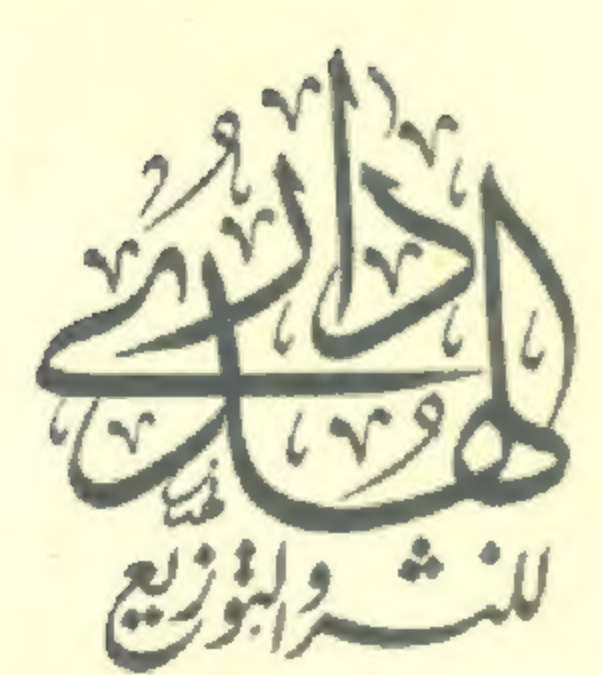 دار الهادي
للنشر والتوزيع